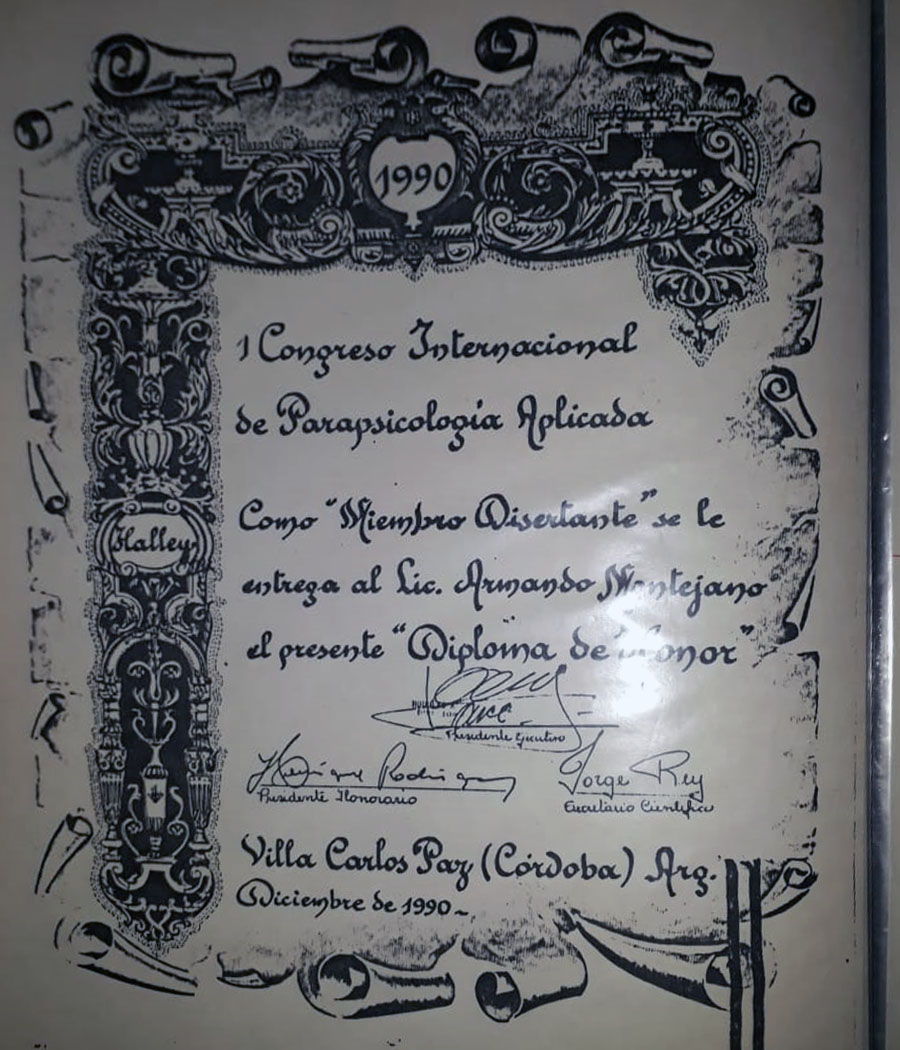 1990
1 Congreso Internacional
de Parapsicología Aplicada
Halley
Como "Miembro Disertante" se le
entrega al Lic. Armando Montejano
el presente "Diploma de Honor"
Presidente Ejecutivo
Henrique Rodriguez
Jorge Rey
Presidente Honorario
Secretario Cientifico
Villa Carlos Paz (Córdoba) Arg.
Diciembre de 1990~